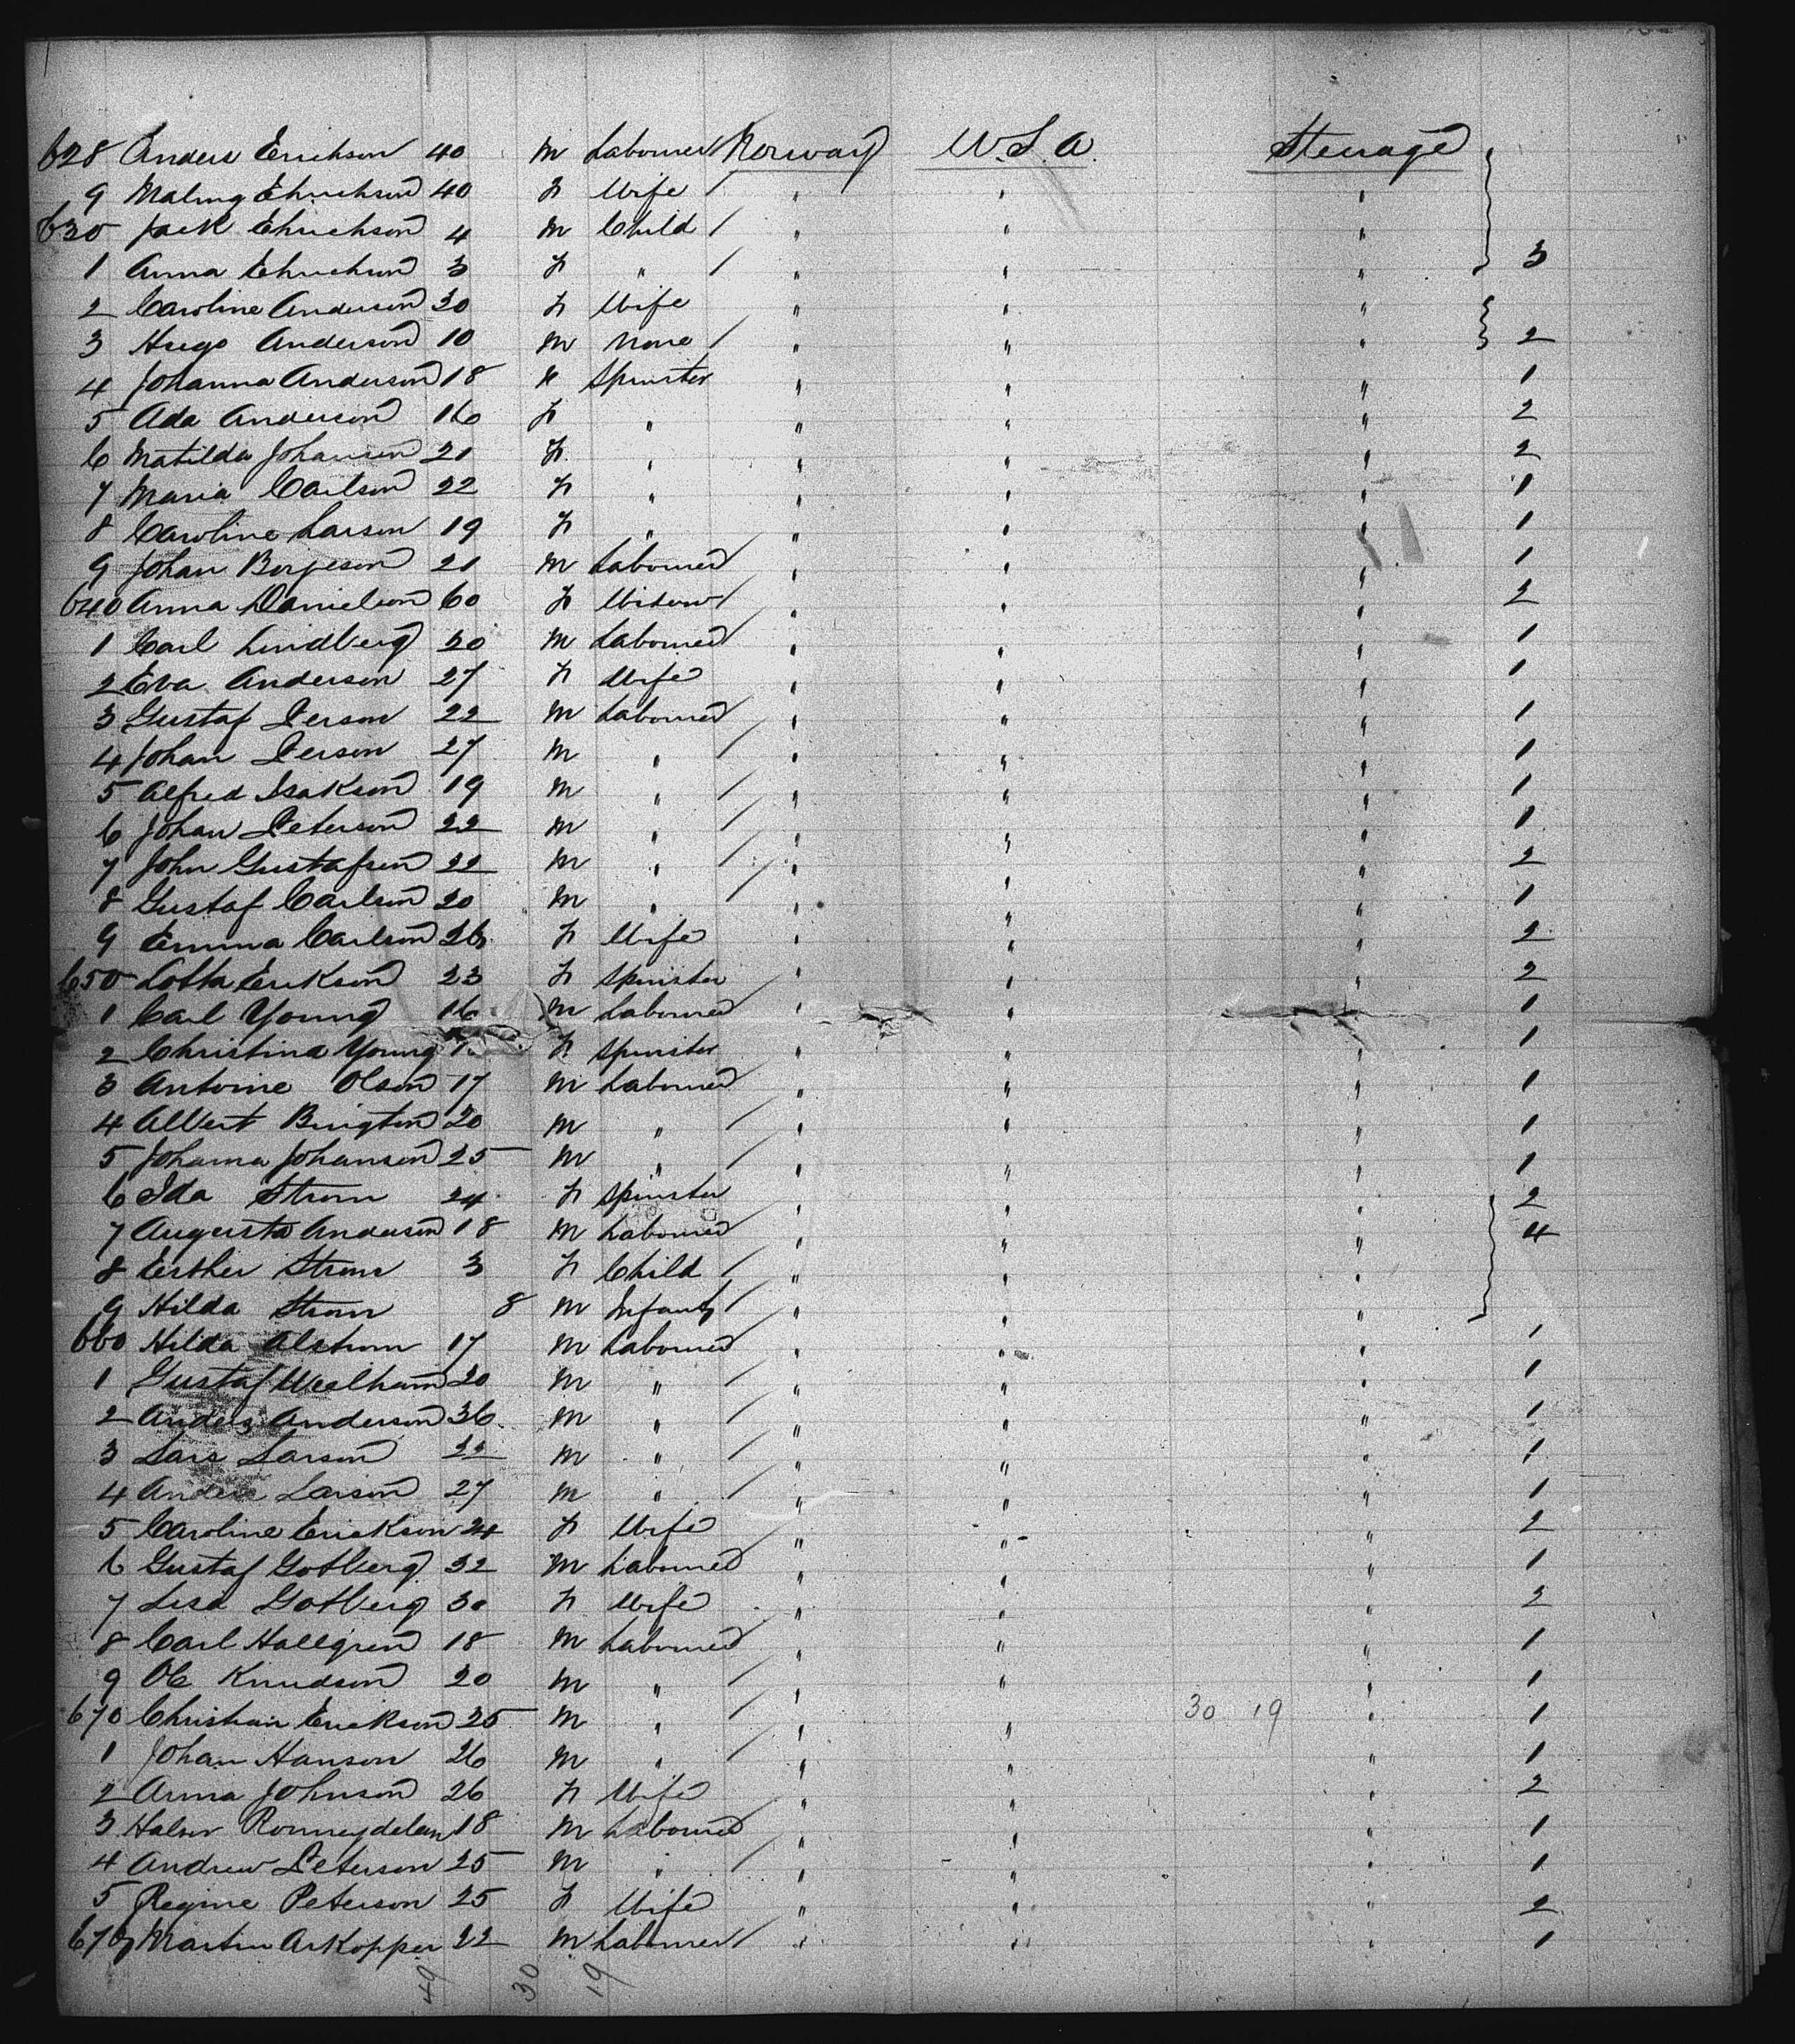 628 Anders Erickson 40 M Labourer Norway U.S.A. Steerage
9 Malung Ehrickson 40 F Wife / " " "
630 Jack Ehrickson 4 M Child / " " "
1 Anna Ehrickson 3 F " / " " " 3
2 Caroline Anderson 30 F Wife " " "
3 Hugo Anderson 10 M None / " " " 2
4 Johanna Anderson 18 F Spinster " " " 1
5 Ada Anderson 16 F " " " " 2
6 Matilda Johanson 21 F " " " " 2
7 Maria Carlson 22 F " " " " 1
8 Caroline Larson 19 F " " " " 1
9 Johan Borjeson 21 M Labourer / " " " 1
640 Anna Danielson 60 F Widow / " " " 2
1 Carl Lindberg 20 M Labourer / " " " 1
2 Eva Anderson 27 F Wife " " " 1
3 Gustaf Person 22 M Labourer / " " " 1
4 Johan Person 27 M " / " " " 1
5 Alfred Isakson 19 M " / " " " 1
6 Johan Peterson 22 M " / " " " 1
7 John Gustafson 22 M " / " " " 2
8 Gustaf Carlson 20 M " / " " " 1
9 Emma Carlson 26 F Wife " " " 2
650 Lotta Erikson 23 F Spinster " " " 2
1 Carl Young 16 M Labourer " " " 1
2 Christina Young F Spinster " " " 1
3 Antoine Olson 17 M Labourer " " " 1
4 Albert Brington 20 M " / " " " 1
5 Johanna Johanson 25 M " / " " " 1
6 Ida Strom 24 F Spinster " " " 2
7 Augusta Anderson 18 M Labourer " " " 4
8 Esther Strom 3 F Child / " " "
9 Hilda Strom 8 M Infant / " " "
660 Hilda Alstrom 17 M Labourer " " " 1
1 Gustaf Welham 20 M " / " " " 1
2 Anders Anderson 36 M " / " " " 1
3 Lars Larson 22 M " / " " " 1
4 Anders Larson 27 M " / " " " 1
5 Caroline Erickson 24 F Wife " " " 2
6 Gustaf Gotberg 32 M Labourer " " " 1
7 Lisa Gotberg 30 F Wife " " " 2
8 Carl Hallgren 18 M Labourer " " " 1
9 Ole Knudson 20 M " / " " " 1
670 Christian Erickson 25 M " / " " 30 19 " 1
1 Johan Hanson 26 M " / " " " 1
2 Anna Johnson 26 F Wife " " " 2
3 Halvor 18 M Labourer " " " 1
4 Andrew Peterson 25 M " / " " " 1
5 Regine Peterson 25 F Wife " " " 2
676 Martin Arkopper 22 M Labourer / " " " 1
49 30 19